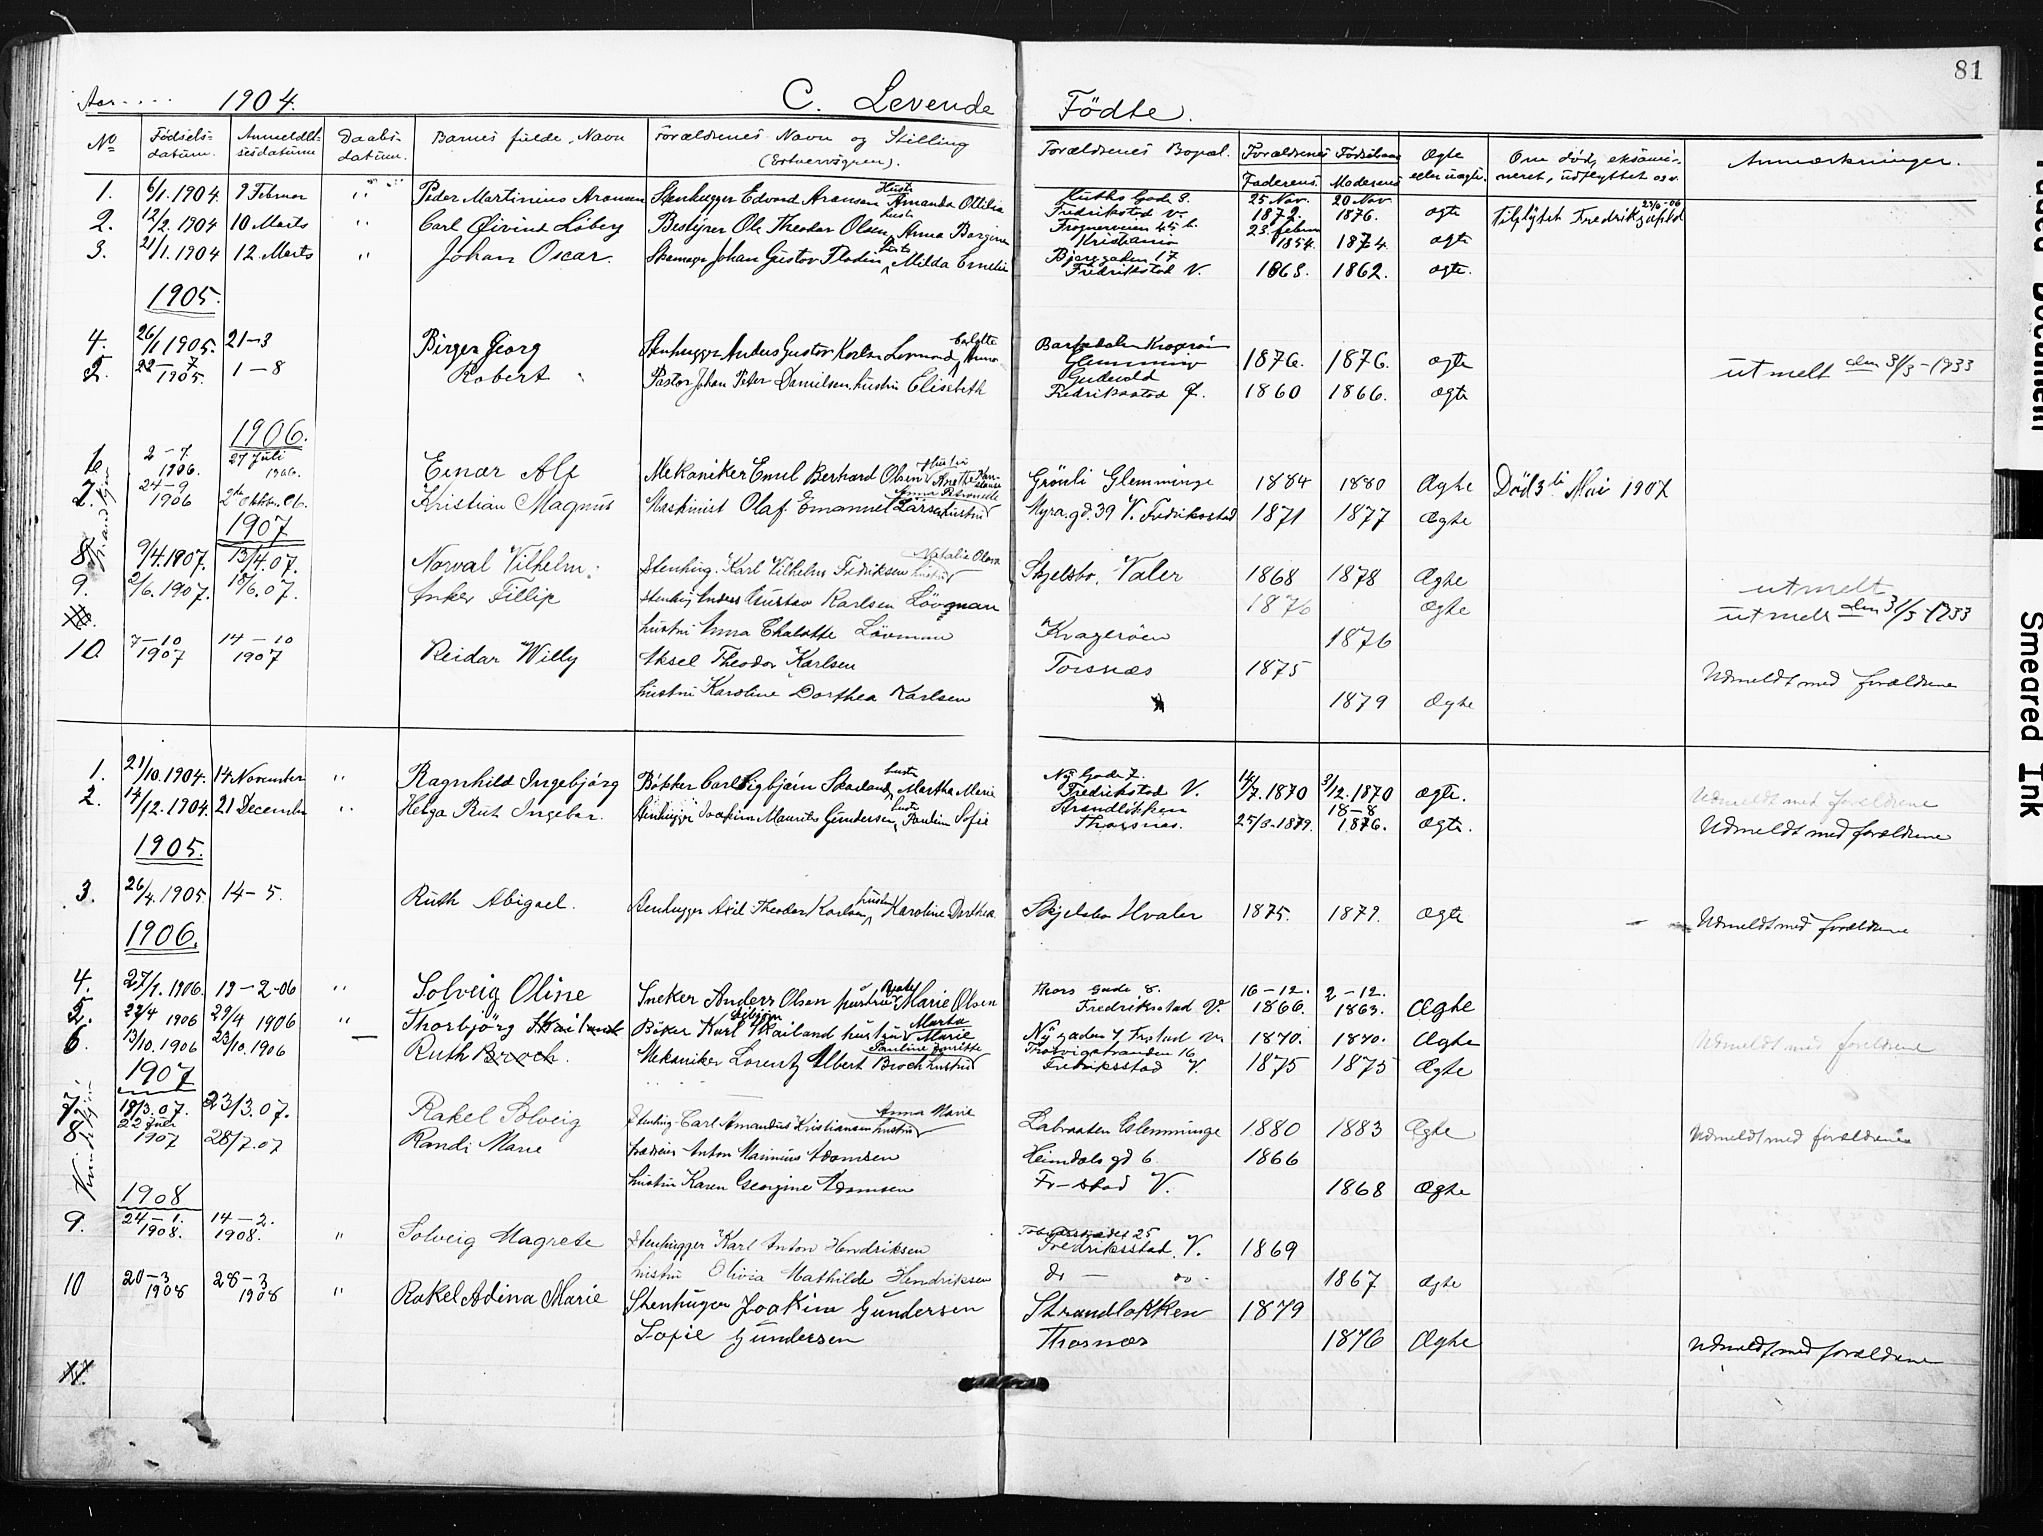 81
Aar 1904. C. Levende Födte.
No Födsels=datum. Anmeldel=sesdatum Daabs=datum. Barnets fulde Navn Forældrenes Navn og Stilling (Erhvervsgren). Forældrenes Bopæl. Forældrenes Födselsaar Faderens Moderens Ægte eller uægte. Om död, eksami=neret, udflyttet osv. Anmærkninger.
1. 6/1.1904. 9 Februar " Peder Martinius Aronsen Stenhugger Edvard Aronsen Hustr Amanda Ottilia Fredrikstad V. 25 Nov. 1872. 20 Nov 1876. ægte Tilflyttet
2. 12/2.1904 10 Marts " Carl Öivind Löberg Bestyrer Ole Theodor Olsen, hustr Anna Bergine Frognerveien 45 b. Kristiania 23. febru 1854. 1874. ægte
3. 21/1.1904 12 Marts " Johan Oscar. Skomager Johan Gustav Flodin hustr Milda Emelie Bjerggaden 17 Fredrikstad V. 1863. 1862. ægte.
1905.
4. 26/1 1905. 21-3 Birger Georg Stenhugger Anders Gustav Karlsen Lovmand, Anna Carlotte Glemminge 1876. 1876. ægte utmelt den 31/3-1933
5. 22-7 1905. 1-8 Robert Pastor Johan Peter Danielsen, hustru Elisebeth Fredriksstad Ø. 1860 1866. ægte
1906.
2-7 1906. 27 Juli 1906. Einar Alf Mekaniker Emil Bernhard Olsen Hustru Grönli Glemminge 1884 1880 Ægte Död 3die Mai 1907
7. 24-9 1906 2den Oktbr. 06. Kristian Magnus Maskinist Olaf Emanuel Larsen hustru Anna Petronelle Myra.gd. 39 V. Fredriksstad 1871 1877 Ægte
1907
8 9/4.1907. 13/4.07. Norval Vilhelm. Stenhug. Karl Vilhelm Fredriksen hustru Natalie Olava Skjelsbo, Valer 1868 1878 Ægte utmelt
9. 2/6.1907. 18/6.07. Anker Fillip Stenhg Anders Gustav Karlsen Lövman 1876 Ægte utmelt den 31/3-1933
hustru Anna Chalotte Lövman Kragerøen 1876
10. 7-10 1907 14-10 1907 Reidar Willy Aksel Theodor Karlsen Torsnæs 1875
hustru Karoline Dorthea Karlsen " 1879 Ægte Udmeldt med forældrene
1. 21/10.1904. 14 November " Ragnhild Ingebjörg Bökker Carl Sigbjörn Skailand, hustr Martha Marie Ny Gade 7. Fredrikstad V. 14/7.1870 3/12.1870 ægte. Udmeldt med forældrene
2. 14/12.1904. 21 December " Helga Rut Ingebor. Stenhugger Joakim Maurits Gundersen, hustr Pauline Sofie Strandlökken Thorsnæs. 25/3-1879. 18-8 1876. Ægte. Udmeldt med forældrene
1905.
3. 26/4.1905 14-5. Ruth Abigael. Stenhugger Axel Theodor Karlsen hustru Karoline Dorthea Skjelsbo Hvaler 1875. 1879. ægte Udmeldt med forældrene
1906.
4. 27/1.1906. 19-2-06 " Solveig Oline Sneker Anders Olsen hustru Marie Olsen Thors gade 8. Fredriksstad V. 16-12. 1866. 2-12. 1863. Ægte
5. 22/4 1906 29/4 1906 " Thorbjörg Skailand Böker Karl Sigbjörn Skailand hustru Marta Marie Nÿ gaden 7 Frstad V. 1870. 1870. Ægte Udmeldt med forældrene
6. 13/10.1906 23/10.1906 Ruth Broch. Mekaniker Lorentz Albert Broch hustru Fredriksstad V. 1875 1875 Ægte
1907
7. 18/3.07. 23/3.07. Rakel Solveig Stenhug. Carl Amandus Kristiansen hustru Anna Marie Labraaten Glemminge 1880 1883 Ægte Udmeldt med forældrene
8 22 Juli 1907 28/7.07 Randi Marie Anton Marinius Adamsen Heimdals gd 6. 1866
hustru Karen Georgine Adamsen Fr-stad V. 1868 Ægte
1908
9. 24-1. 1908. 14-2. 1908. " Solveig Magrete Stenhugger Karl Anton Hendriksen Fredriksstad. V. 1869
hustru Olivia Mathilde Hendriksen do - do - 1867 ægte
10 20-3 1908 28-3 1908 " Rakel Adina Marie Stenhuger Joakim Gundersen Strandlokken 1879
Sofie Gundersen Thorsnæs 1876 Ægte Udmeldt med forældrene
11.
Smeared Ink